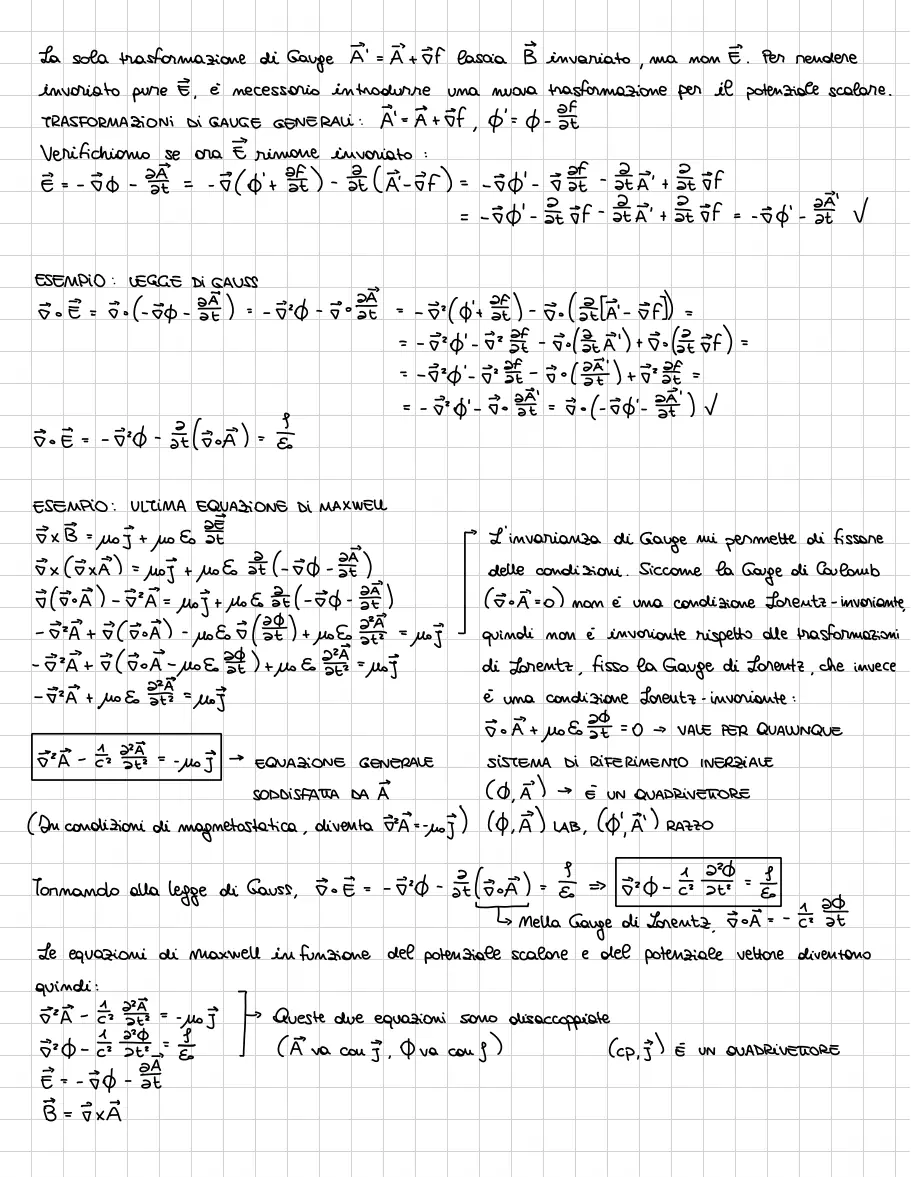 La sola trasformazione di Gauge A⃗' = A⃗ + ∇⃗f lascia B⃗ invariato, ma non E⃗. Per rendere
invariato pure E⃗, è necessario introdurre una nuova trasformazione per il potenziale scalare.
TRASFORMAZIONI DI GAUGE GENERALI: A⃗' = A⃗ + ∇⃗f, ϕ' = ϕ - ∂f/∂t
Verifichiamo se ora E⃗ rimane invariato:
E⃗ = -∇⃗ϕ - ∂A⃗/∂t = -∇⃗(ϕ' + ∂f/∂t) - ∂/∂t(A⃗' - ∇⃗f) = -∇⃗ϕ' - ∇⃗ ∂f/∂t - ∂/∂t A⃗' + ∂/∂t ∇⃗f
= -∇⃗ϕ' - ∂/∂t ∇⃗f - ∂/∂t A⃗' + ∂/∂t ∇⃗f = -∇⃗ϕ' - ∂A⃗'/∂t √
ESEMPIO: LEGGE DI GAUSS
∇⃗∘E⃗ = ∇⃗∘(-∇⃗ϕ - ∂A⃗/∂t) = -∇⃗²ϕ - ∇⃗∘∂A⃗/∂t = -∇⃗²(ϕ' + ∂f/∂t) - ∇⃗∘(∂/∂t[A⃗' - ∇⃗f]) =
= -∇⃗²ϕ' - ∇⃗² ∂f/∂t - ∇⃗∘(∂/∂t A⃗') + ∇⃗∘(∂/∂t ∇⃗f) =
= -∇⃗²ϕ' - ∇⃗² ∂f/∂t - ∇⃗∘(∂A⃗'/∂t) + ∇⃗² ∂f/∂t =
= -∇⃗²ϕ' - ∇⃗∘ ∂A⃗'/∂t = ∇⃗∘(-∇⃗ϕ' - ∂A⃗'/∂t) √
∇⃗∘E⃗ = -∇⃗²ϕ - ∂/∂t(∇⃗∘A⃗) = ρ/ε₀
ESEMPIO: ULTIMA EQUAZIONE DI MAXWELL
∇⃗×B⃗ = μ₀j⃗ + μ₀ε₀ ∂E⃗/∂t
∇⃗×(∇⃗×A⃗) = μ₀j⃗ + μ₀ε₀ ∂/∂t(-∇⃗ϕ - ∂A⃗/∂t)
∇⃗(∇⃗∘A⃗) - ∇⃗²A⃗ = μ₀j⃗ + μ₀ε₀ ∂/∂t(-∇⃗ϕ - ∂A⃗/∂t)
-∇⃗²A⃗ + ∇⃗(∇⃗∘A⃗) - μ₀ε₀∇⃗(∂ϕ/∂t) + μ₀ε₀ ∂²A⃗/∂t² = μ₀j⃗
-∇⃗²A⃗ + ∇⃗(∇⃗∘A⃗ - μ₀ε₀ ∂ϕ/∂t) + μ₀ε₀ ∂²A⃗/∂t² = μ₀j⃗
-∇⃗²A⃗ + μ₀ε₀ ∂²A⃗/∂t² = μ₀j⃗
∇⃗²A⃗ - 1/c² ∂²A⃗/∂t² = -μ₀j⃗ → EQUAZIONE GENERALE
SODDISFATTA DA A⃗
(In condizioni di magnetostatica, diventa ∇⃗²A⃗ = -μ₀j⃗)
L'invarianza di Gauge mi permette di fissare
delle condizioni. Siccome la Gauge di Coulomb
(∇⃗∘A⃗=0) non è una condizione Lorentz-invariante,
quindi non è invariante rispetto alle trasformazioni
di Lorentz, fisso la Gauge di Lorentz, che invece
è una condizione Lorentz-invariante:
∇⃗∘A⃗ + μ₀ε₀ ∂ϕ/∂t = 0 → VALE PER QUALUNQUE
SISTEMA DI RIFERIMENTO INERZIALE
(ϕ, A⃗) → È UN QUADRIVETTORE
(ϕ, A⃗) LAB, (ϕ', A⃗') RAZZO
Tornando alla legge di Gauss, ∇⃗∘E⃗ = -∇⃗²ϕ - ∂/∂t(∇⃗∘A⃗) = ρ/ε₀ ⇒ ∇⃗²ϕ - 1/c² ∂²ϕ/∂t² = ρ/ε₀
↳ Nella Gauge di Lorentz, ∇⃗∘A⃗ = - 1/c² ∂ϕ/∂t
Le equazioni di Maxwell in funzione del potenziale scalare e del potenziale vettore diventano
quindi:
∇⃗²A⃗ - 1/c² ∂²A⃗/∂t² = -μ₀j⃗ → Queste due equazioni sono disaccoppiate
∇⃗²ϕ - 1/c² ∂²ϕ/∂t² = ρ/ε₀ (A⃗ va con j⃗, ϕ va con ρ) (cρ, j⃗) È UN QUADRIVETTORE
E⃗ = -∇⃗ϕ - ∂A⃗/∂t
B⃗ = ∇⃗×A⃗